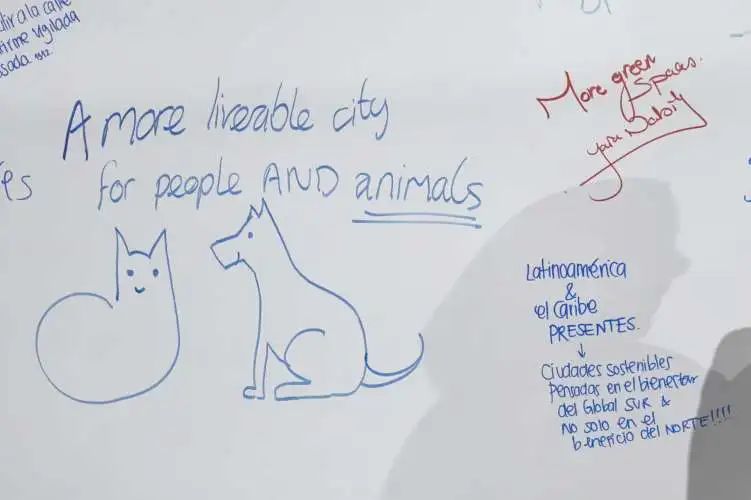 A more liveable city
for people AND animals
More green
Spaces.
Latinoamérica
&
el Caribe
PRESENTES.
↓
Ciudades sostenibles
Pensadas en el bienestar
del Global SUR &
NO solo en el
beneficio del NORTE!!!!